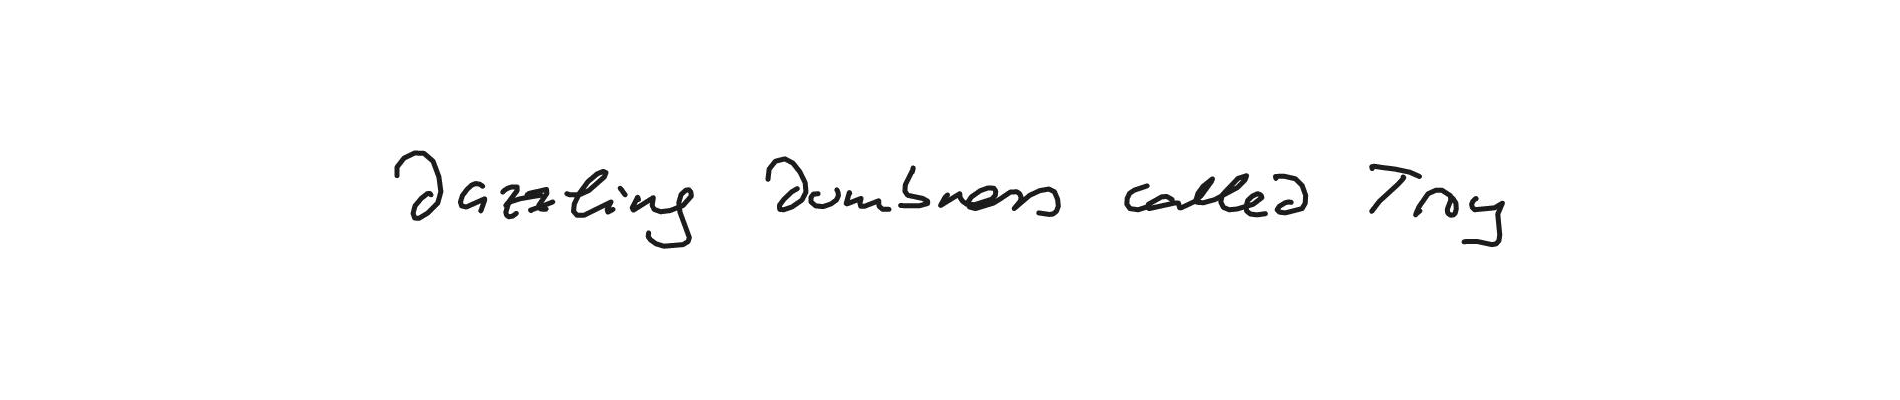 dazzling dumbness called Troy